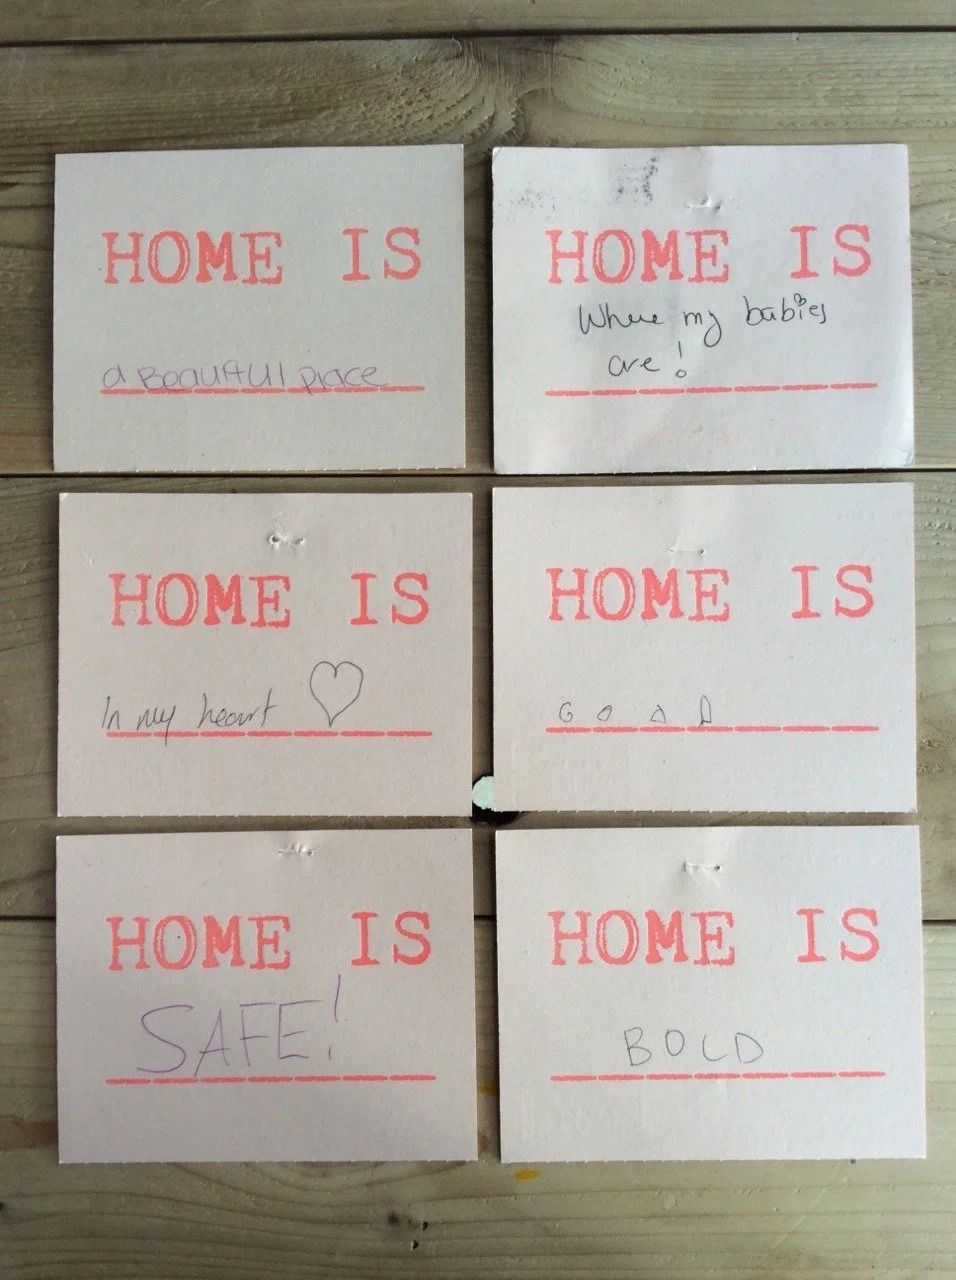 HOME IS
a BEAUTIFUL place
HOME IS
Where my babies
are!
HOME IS
In my heart
HOME IS
GOOD
HOME IS
SAFE!
HOME IS
BOLD